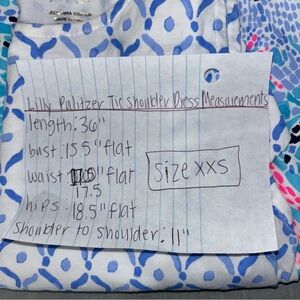 Lilly Pulitzer Tie Shoulder Dress Measurements
length: 36"
bust: 15.5" flat
waist: flat
17.5
hips: 18.5" flat
shoulder to shoulder: 11"
Size XXS